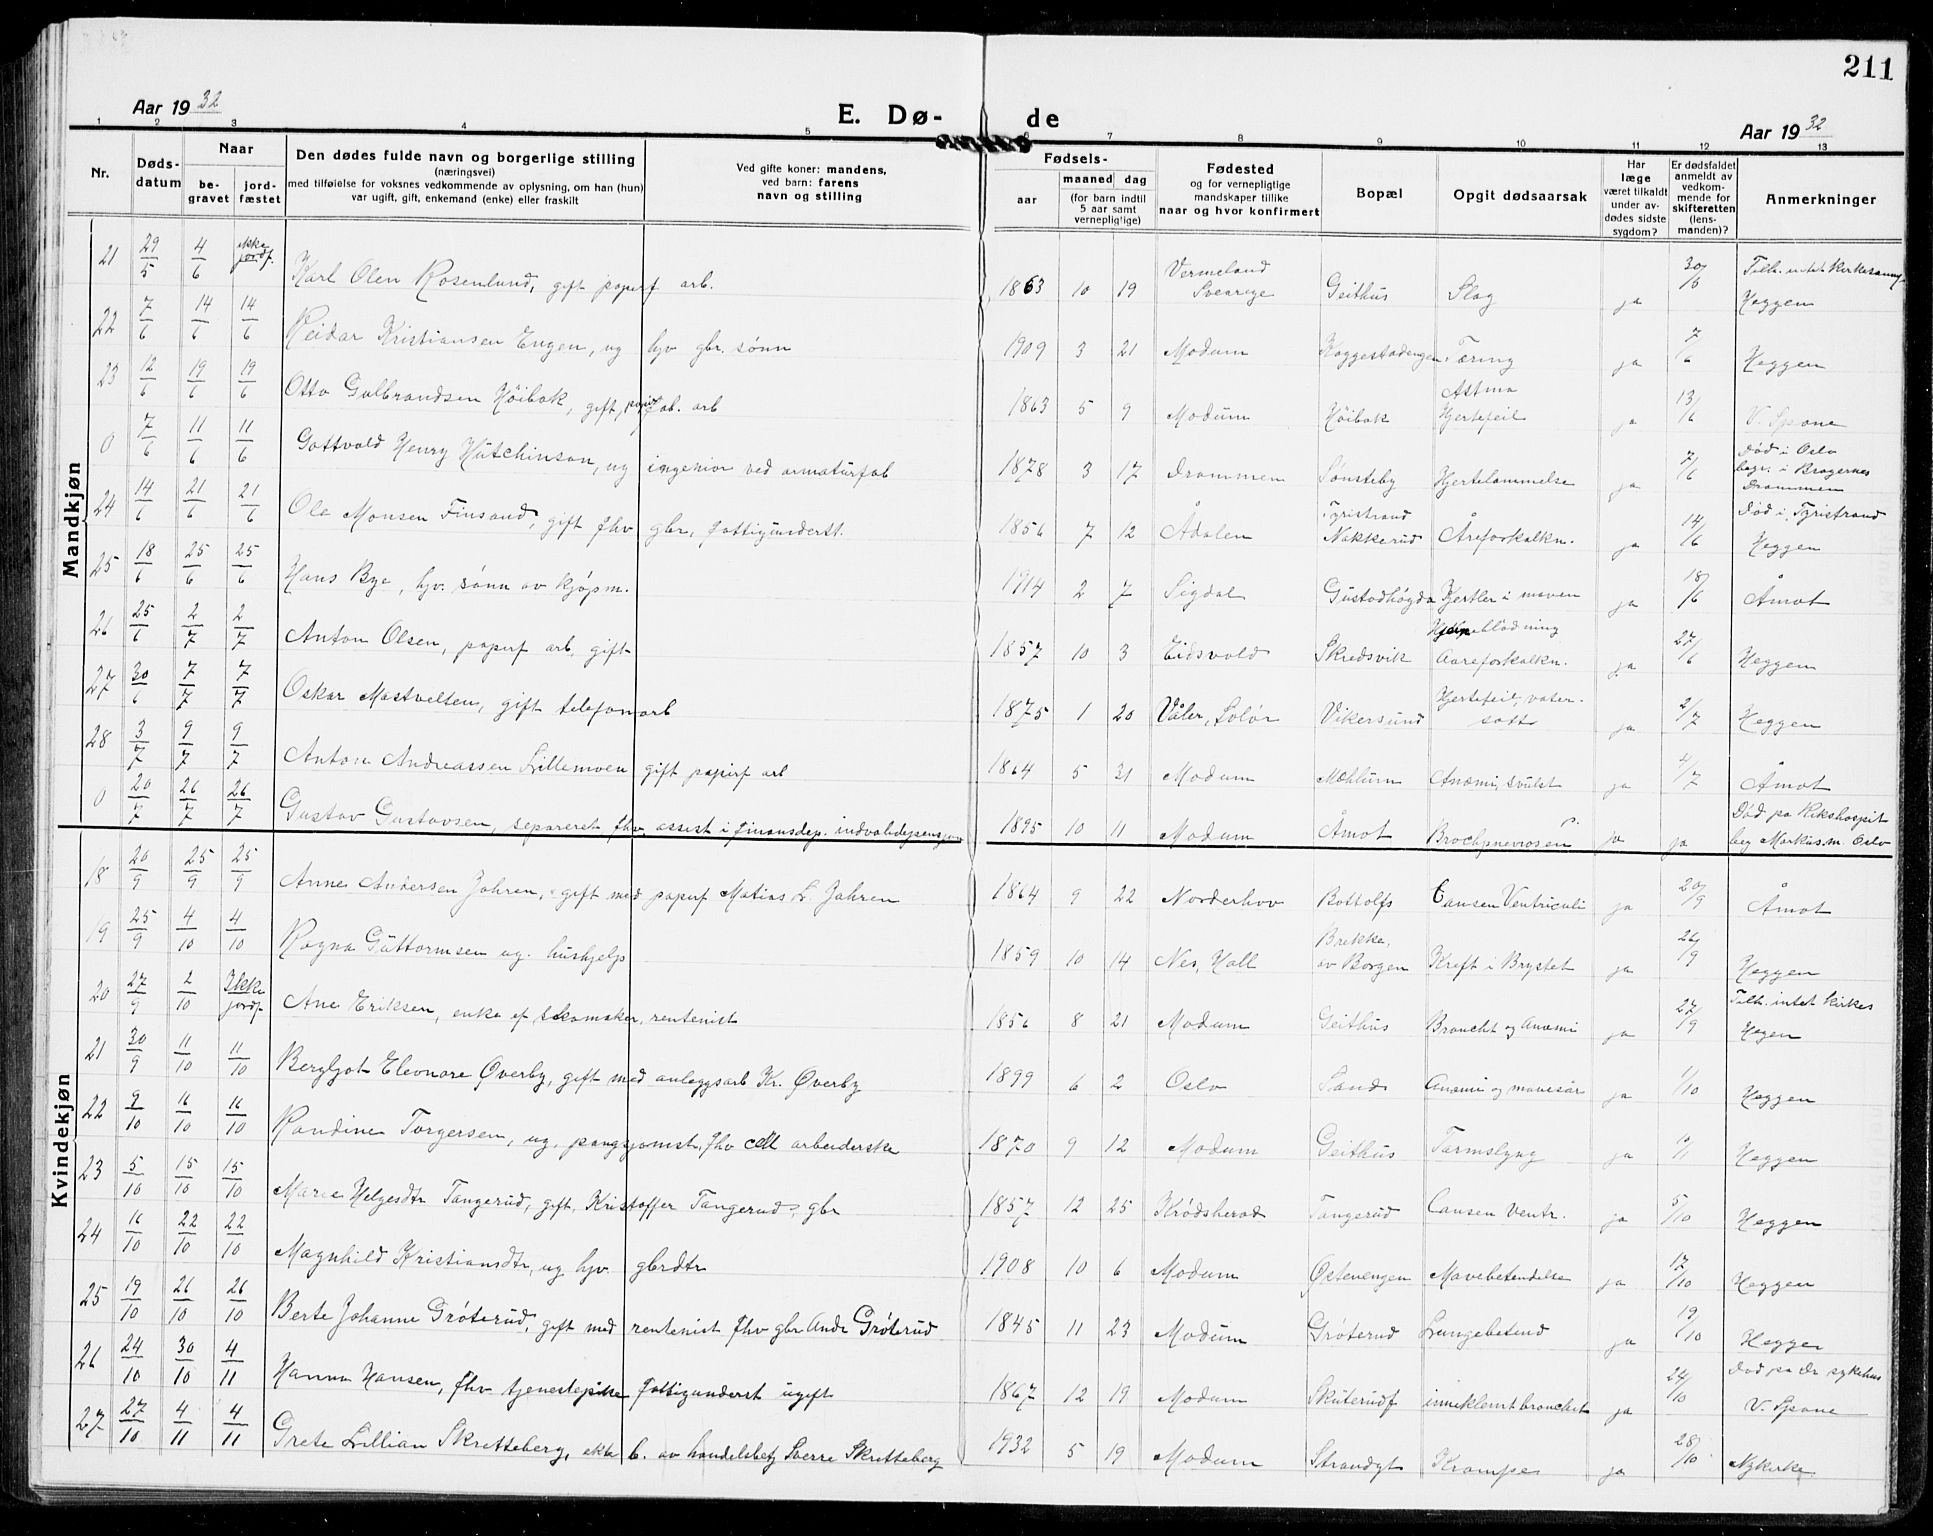 211
Aar 1932 E. Dø- de Aar 1932
1 2 3 4 5 6 7 8 9 10 11 12 13
Nr. Dødsdatum Naar begravet jordfæstet
Den dødes fulde navn og borgerlige stilling
(næringsvei)
med tilføielse for voksnes vedkommende av oplysning, om han (hun)
var ugift, gift, enkemand (enke) eller fraskilt
Ved gifte koner: mandens,
ved barn: farens
navn og stilling
Fødsels-
aar maaned dag
(for barn indtil
5 aar samt
vernepligtige)
Fødested
og for vernepligtige
mandskaper tillike
naar og hvor konfirmert
Bopæl
Opgit dødsaarsak
Har
læge
været tilkaldt
under av-
dødes sidste
sygdom?
Er dødsfaldet
anmeldt av
vedkom-
mende for
skifteretten
(lens-
manden)?
Anmerkninger
Mandkjøn
21 29/5 4/6 ikke jordf. Karl Olen Rosenlund, gift papirf arb. 1863 10 19 Vermeland Svearige Geithus Slag ja 30/5 Tilh. intet kirkesamf Heggen
22 7/6 14/6 14/6 Reidar Kristiansen Engen, ug hjv gbr. sønn 1909 3 21 Modum Koggestadengen Tæring ja 7/6 Heggen
23 12/6 19/6 19/6 Otto Gulbrandsen Höibak, gift, papirfab. arb 1863 5 9 Modum Höibak Astma Hjertefeil ja 13/6 V. Spone
0 7/6 11/6 11/6 Gottvald Henry Hutchinson, ug ingeniør ved armaturfab 1878 3 17 Drammen Sønsteby Hjertelammelse ja 7/6 Død i Oslo begr. i Bragernes Drammen
24 14/6 21/6 21/6 Ole Monsen Finsand, gift fhv gbr, fattigunderst. 1856 7 12 Ådalen Tyristrand Nakkerud Åreforkalkn. ja 14/6 Død i Tyristrand Heggen
25 18/6 25/6 25/6 Hans Bye, hjv. sønn av kjøpm. 1914 2 7 Sigdal Gustadhøgda Kjertler i maven ja 18/6 Åmot
26 25/6 2/7 2/7 Anton Olsen, papirf arb, gift 1857 10 3 Eidsvold Skredsvik Hjerneblødning Aareforkalkn. ja 27/6 Heggen
27 30/6 7/7 7/7 Oskar Mastveltsen, gift telefonarb 1875 1 20 Våler, Solør Vikersund Hjertefeil, vatersott ja 2/7 Heggen
28 3/7 9/7 9/7 Anton Andreassen Lillemoen gift papirf arb 1864 5 31 Modum Mæhlum Anæmi, svulst ja 4/7 Åmot
0 20/7 26/7 26/7 Gustav Gustavsen, separeret fhv assist i finansdep. 1895 10 11 Modum Åmot ja ja Død på Rikshospit beg Markus.m. Oslo
Kvindekjøn
18 20/9 25/9 25/9 Anne Andersen Jahren, gift med papirf Matias L. Jahren 1864 9 22 Norderhov Bottolfs Cansen Ventriculi ja 20/9 Åmot
19 25/9 4/10 4/10 Ragna Guttormsen ug. hushjelp 1859 10 14 Nes, Hall Brekke, av Borgen Kreft i Brystet ja 26/9 Heggen
20 27/9 2/10 Ikke jordf Ane Eriksen, enke ef skomaker, rentenist 1856 8 21 Modum Geithus Bronchit og Anæmi ja 27/9 Tilh. intet kirkes Hegen
21 30/9 11/10 11/10 Bergljot Eleonore Øverby, gift med anleggsarb Kr. Øverby 1899 6 2 Oslo Sand Anæmi og mavesår ja 1/10 Heggen
22 9/10 16/10 16/10 Randine Torgersen, ug, fhv arbeiderske 1870 9 12 Modum Geithus Tarmslyng ja Heggen
23 5/10 15/10 15/10 Marie Helgesdtr Tangerud, gift, Kristoffer Tangerud, gbr 1857 12 25 Krødsherad Tangerud Cansen Ventr. ja 5/10 Heggen
24 16/10 22/10 22/10 Magnhild Kristiansdtr, ug hjv. gbrdtr 1908 10 6 Modum Østenengen Mavebetendelse ja 17/10 Heggen
25 19/10 26/10 26/10 Berte Johanne Grøterud, gift med rentenist fhv gbr Andr Grøterud 1845 11 23 Modum Grøterud Lungebetend ja 19/10 Heggen
26 24/10 30/10 4/11 Hanna Hansen, fhv tjenestepike fattigunderst ugift 1867 12 19 Modum Skuterudf inneklemt ja 24/10 Død på Dr sykehus V. Spone
27 27/10 4/11 4/11 Grete Lillian Skretteberg, ekte b. av handelsbetj Sverre Skretteberg 1932 5 19 Modum Strandgt Krampe ja 28/10 Nykirke